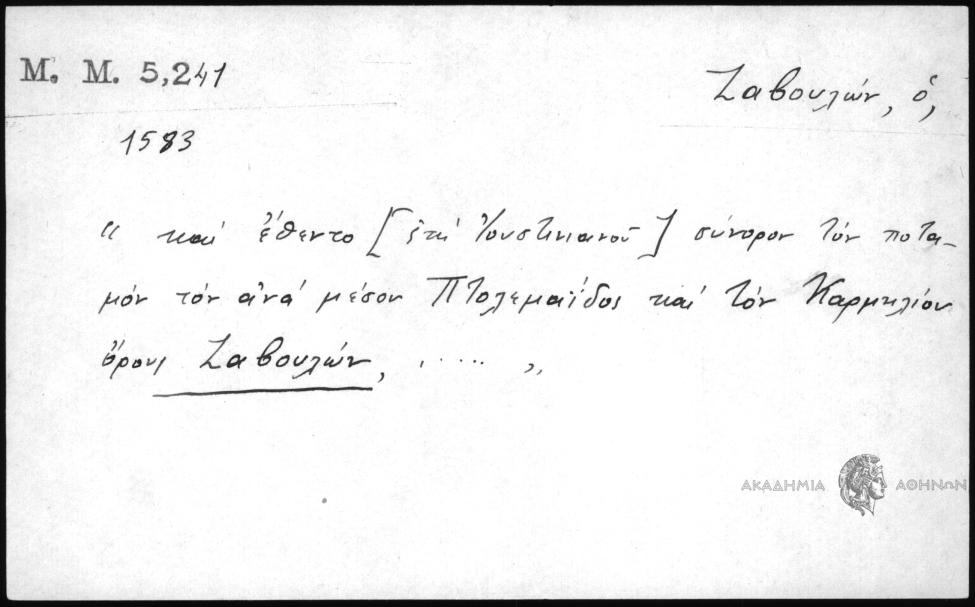 M. M. 5,241
Ζαβουλών, ὁ,
1583
" καὶ ἔθεντο [ἐπὶ Ἰουστινιανοῦ] σύνορον τὸν ποτα-
μὸν τὸν ἀνὰ μέσον Πτολεμαΐδος καὶ τὸν Καρμηλίου
ὄρους Ζαβουλών, ..... "
ΑΚΑΔΗΜΙΑ ΑΘΗΝΩΝ